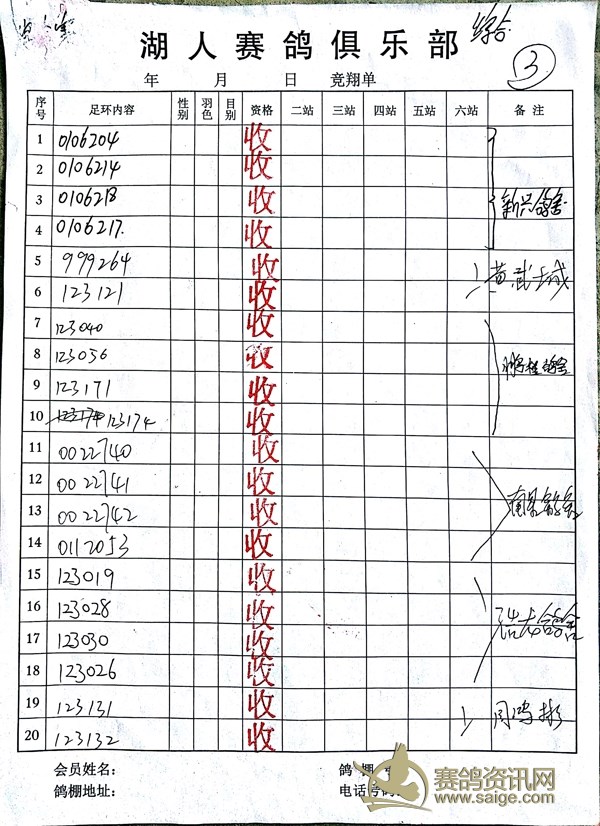 综合
湖人赛鸽俱乐部
3
年 月 日 竞翔单
序号 足环内容 性别 羽色 目别 资格 二站 三站 四站 五站 六站 备注
1 0106204 收
2 0106214 收
3 0106218 收 新兴鸽舍
4 0106217. 收
5 999264 收 黄武士成
6 123121 收
7 123040 收
8 123056 收
9 123171 收
10 123174 收
11 0022740 收
12 0022741 收
13 0022742 收
14 0112053 收
15 123019 收
16 123028 收 浩龙鸽舍
17 123030 收
18 123026 收
19 123131 收 周鸿彬
20 123132 收
会员姓名: 鸽棚
鸽棚地址: 电话号码:
赛鸽资讯网
www.saige.com